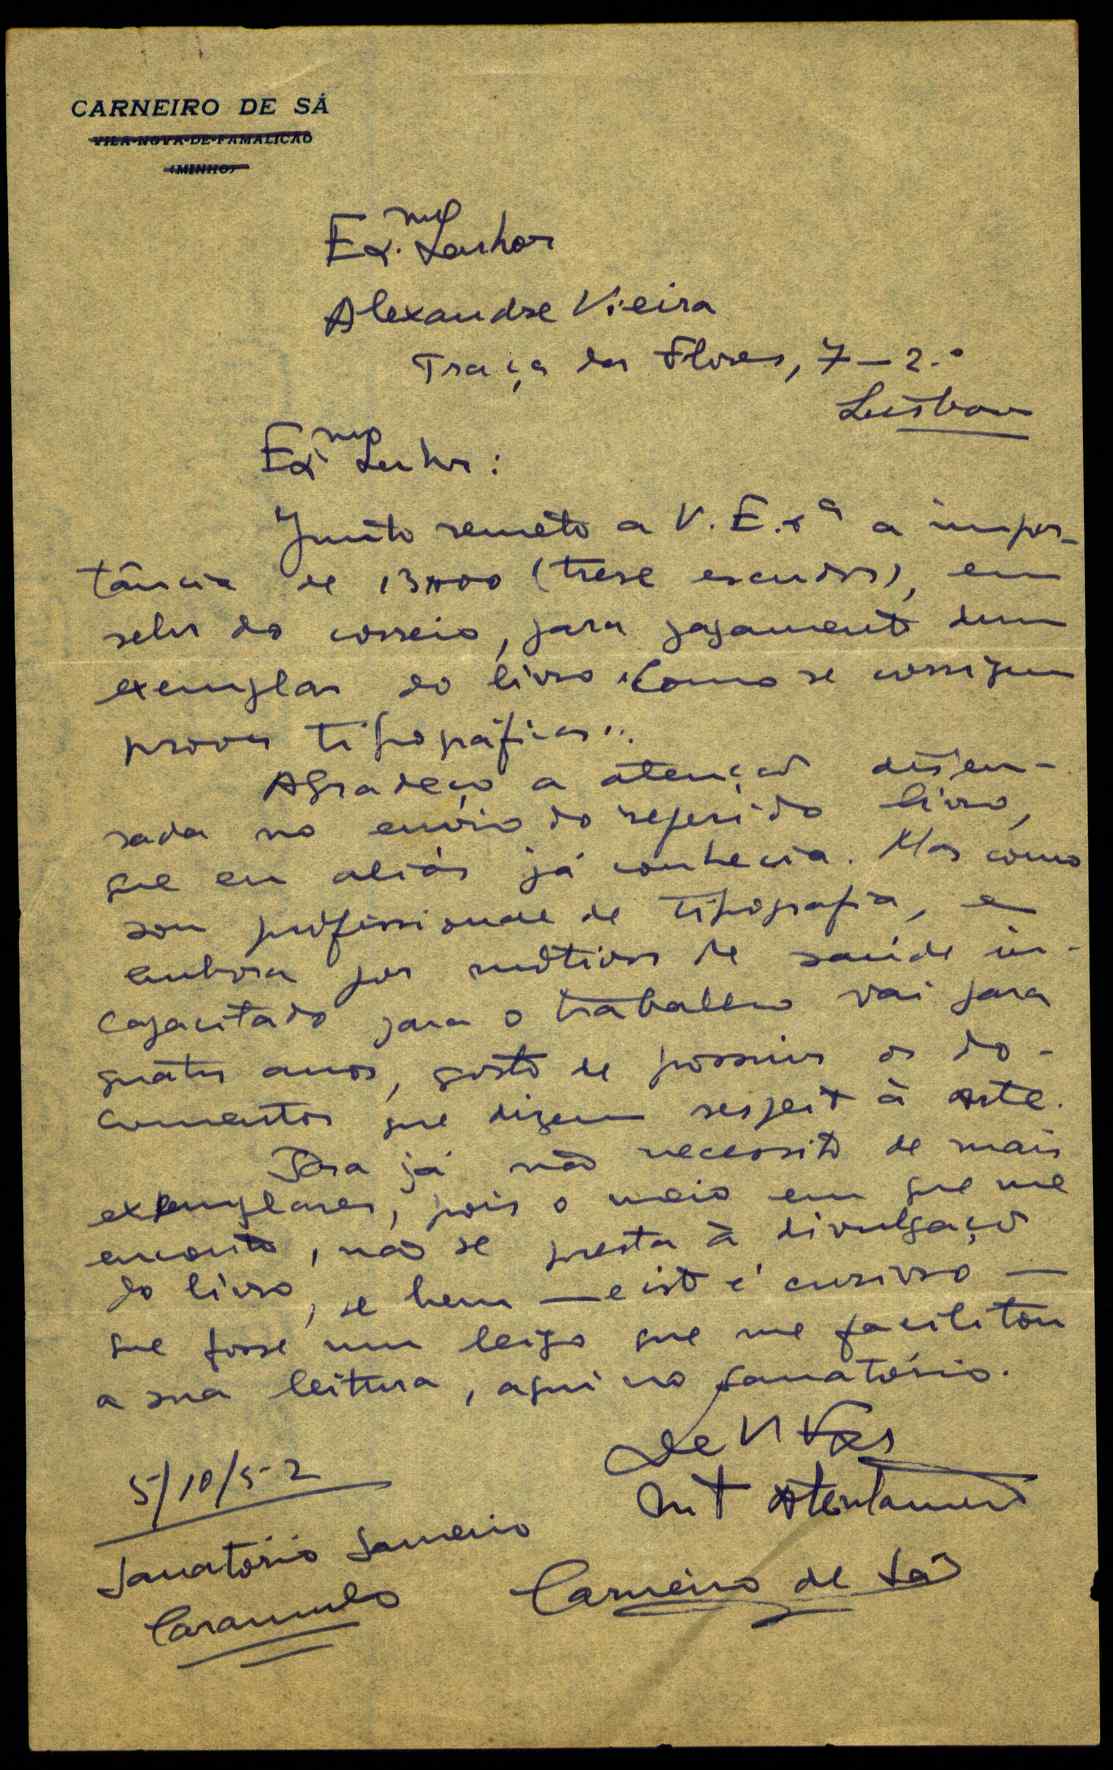 CARNEIRO DE SÁ
VILA-NOVA-DE-FAMALICÃO
(MINHO)
Ex.mo Senhor
Alexandre Vieira
Praça das Flores, 7-2.º
Lisboa
Exmo Senhor:
Junto remeto a V. Ex.ª a impor-
tância de 13$00 (trese escudos), em
selos do correio, para pagamento dum
exemplar do livro "Como se corrigem
provas tipográficas".
Agradeço a atenção dispen-
sada no envio do referido livro,
que eu aliás já conhecia. Mas como
sou profissional de tipografia, e
embora por motivos de saúde in-
capacitado para o trabalho vai para
quatro anos, gosto de possuir os do-
cumentos que dizem respeito à arte.
Para já não necessito de mais
exemplares, pois o meio em que me
encontro, não se presta à divulgação
do livro, se bem — e isto é curioso —
que fosse um leigo que me facilitou
a sua leitura, aqui no Sanatório.
De V. Ex.ª
Mt Atentamente
5/10/52
Sanatório Sameiro
Caramulo
Carneiro de Sá